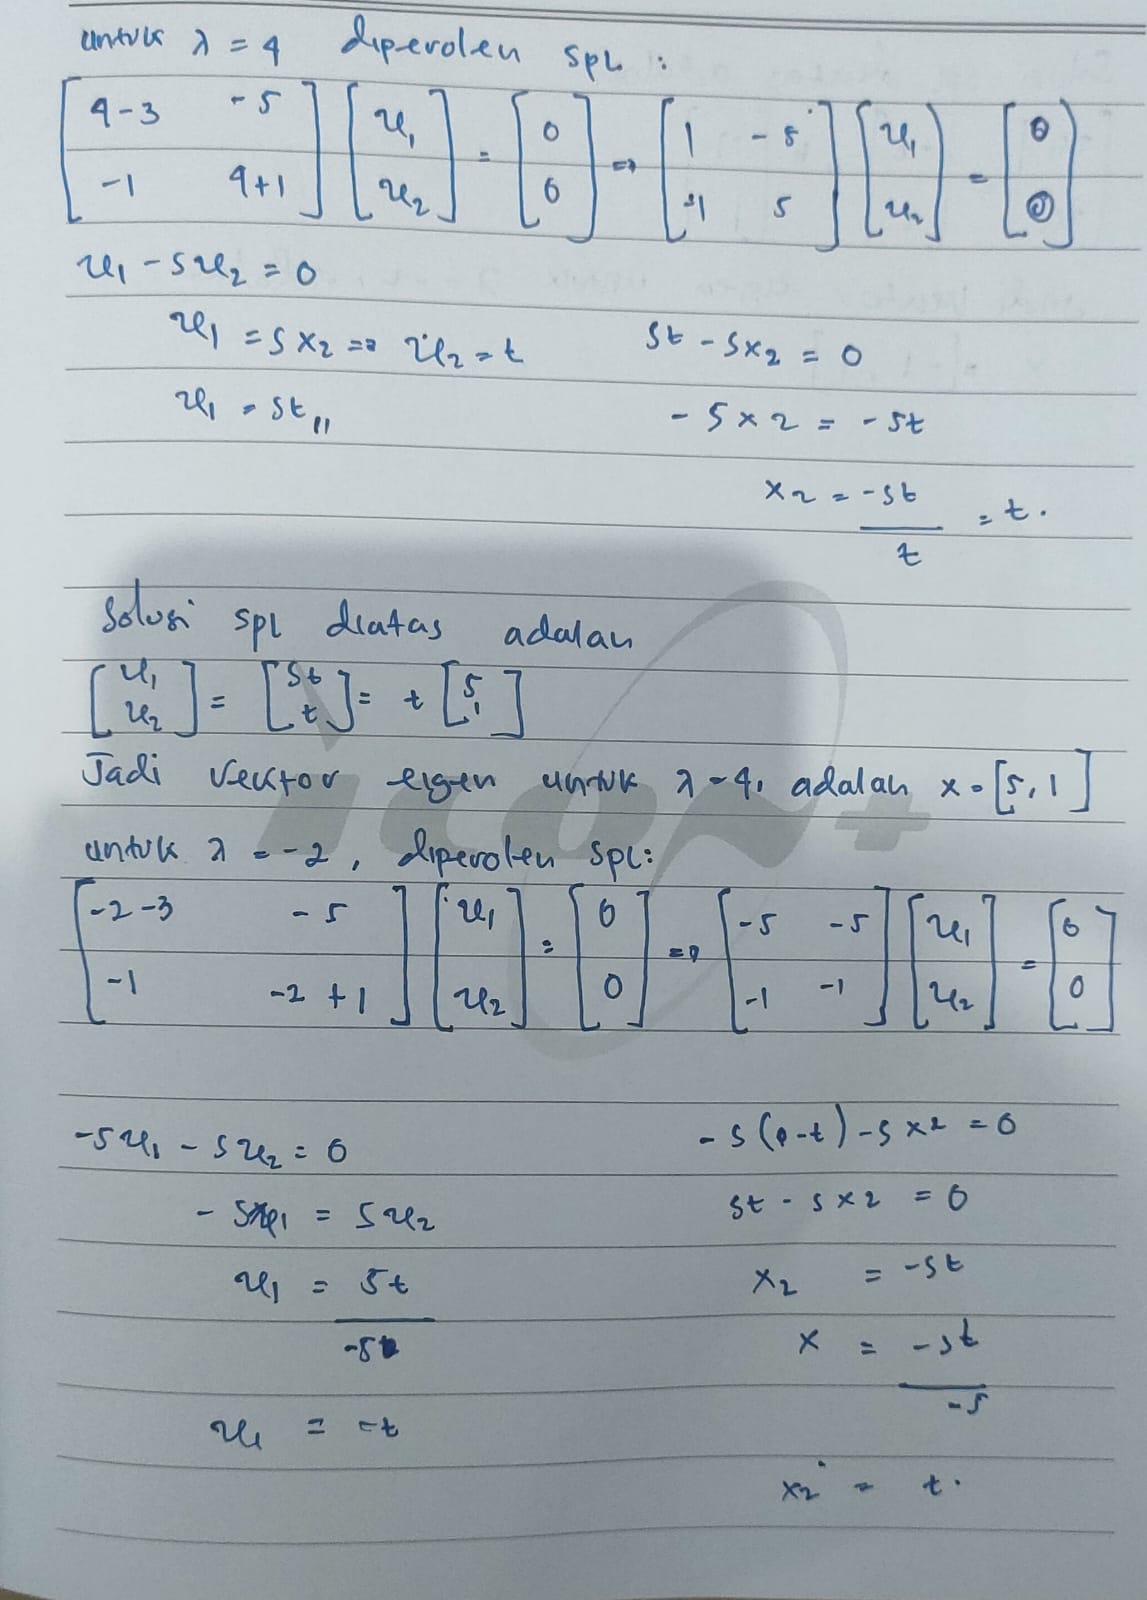 untuk λ = 4 diperoleh SPL :
[4-3 -5; -1 4+1] [x₁; x₂] = [0; 0] => [1 -5; -1 5] [x₁; x₂] = [0; 0]
x₁ - 5x₂ = 0
x₁ = 5x₂ => x₂ = t
x₁ = 5t //
5t - 5x₂ = 0
-5x2 = -5t
x₂ = -5t/t = t.
Solusi spl diatas adalah
[x₁; x₂] = [5t; t] = t [5; 1]
Jadi Vektor eigen untuk λ = 4, adalah x = [5, 1]
untuk λ = -2, diperoleh SPL:
[-2-3 -5; -1 -2+1] [x₁; x₂] = [0; 0] => [-5 -5; -1 -1] [x₁; x₂] = [0; 0]
-5x₁ - 5x₂ = 0
-5x₁ = 5x₂
x₁ = 5t/-5
x₁ = -t
-5(-t) - 5x2 = 0
5t - 5x2 = 0
x₂ = -5t
x = -5t/-5
x₂ = t.